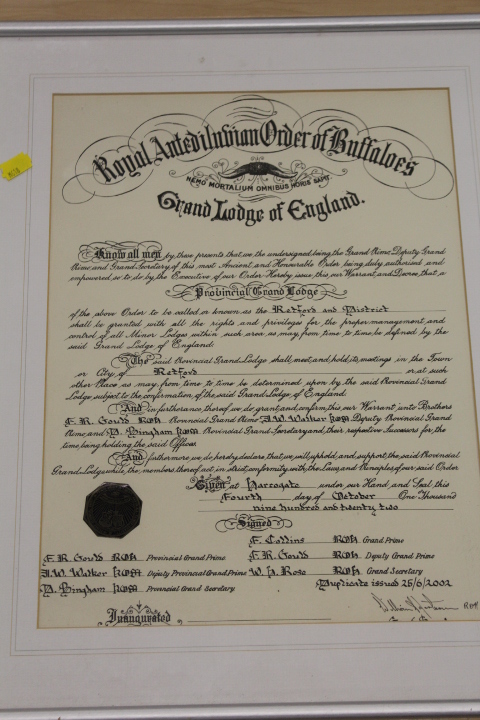 Royal Antediluvian Order of Buffaloes
NEMO MORTALIUM OMNIBUS HORIS SAPIT
Grand Lodge of England.
Know all men by these presents that we the undersigned being the Grand Primo, Deputy Grand
Primo and Grand Secretary of this most Ancient and Honourable Order being duly authorised and
empowered so to do by the Executive of our Order Hereby issue this our Warrant and Decree that a
Provincial Grand Lodge
of the above Order to be called or known as the Retford and District
shall be granted with all the rights and privileges for the proper management and
control of all Minor Lodges within such area as may from time to time be defined by the
said Grand Lodge of England:
The said Provincial Grand Lodge shall meet and hold its meetings in the Town
or City of Retford or at such
other Place as may from time to time be determined upon by the said Provincial Grand
Lodge subject to the confirmation of the said Grand Lodge of England
And in furtherance thereof we do grant and confirm this our Warrant unto Brothers
F. R. Gould ROH Provincial Grand Primo J. W. Walker KOM Deputy Provincial Grand
Primo and D. Bingham KOM Provincial Grand Secretary and their respective Successors for the
time being holding the said Offices
And furthermore we do hereby declare that we will uphold and support the said Provincial
Grand Lodge while the members thereof act in strict conformity with the Laws and Principles of our said Order
Given at Harrogate under our Hand and Seal this
Fourth day of October One Thousand
nine hundred and twenty two
Signed
F. Collins ROH Grand Primo
F. R. Gould ROH Provincial Grand Primo F. R. Gould ROH Deputy Grand Primo
J. W. Walker KOM Deputy Provincial Grand Primo W. A. Rose ROH Grand Secretary
D. Bingham KOM Provincial Grand Secretary Duplicate issued 25/6/2002
ROH
Inaugurated